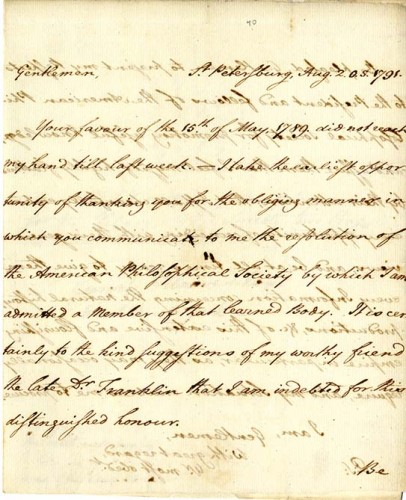 40
Gentlemen, St. Petersburg, Aug. 2. O.S. 1791.
Your favour of the 15th of May, 1789. did not reach
my hand till last week. — I take the earliest oppor
tunity of thanking you for the obliging manner in
which you communicate to me the resolution of
the American Philosophical Society by which I am
admitted a Member of that learned Body. It is cer
tainly to the kind suggestions of my worthy friend
the late Dr Franklin that I am indebted for this
distinguished honour.
I am, Gentlemen,
Be